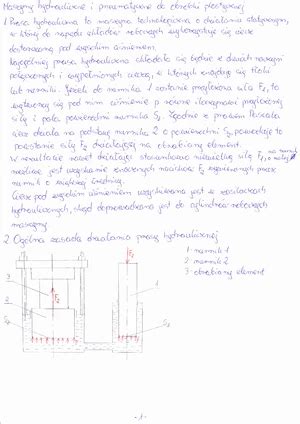 Maszyny hydrauliczne i pneumatyczne do obróbki plastycznej
1. Prasa hydrauliczna to maszyna technologiczna o działaniu statycznym,
w której do napędu układów roboczych wykorzystuje się ciecz
dostarczaną pod wysokim ciśnieniem.
Najogólniej prasa hydrauliczna składała się będzie z dwóch naczyń
połączonych i wypełnionych cieczą, w których znajdują się tłoki
lub nurniki. Jeżeli do nurnika 1 zostanie przyłożona siła F1, to
wytworzy się pod nim ciśnienie p równe ilorazowi przyłożonej
siły i pola powierzchni nurnika S1. Zgodnie z prawem Pascala
ciecz działa na podstawę nurnika 2 o powierzchni S2 powoduje to
powstanie siły F2 działającej na obrabiany element.
W rezultacie nawet działając stosunkowo niewielką siłą F1 na nurnik
możliwe jest uzyskanie znacznych nacisków F2 wywieranych przez
nurnik o większej średnicy.
Ciecz pod wysokim ciśnieniem uzyskiwana jest w zasilaczach
hydraulicznych, skąd doprowadzana jest do cylindrów roboczych
maszyny.
2. Ogólna zasada działania prasy hydraulicznej
1- nurnik 1
2- nurnik 2
3- obrabiany element
F1
F2
3
2
1
S2
S1
- 1 -